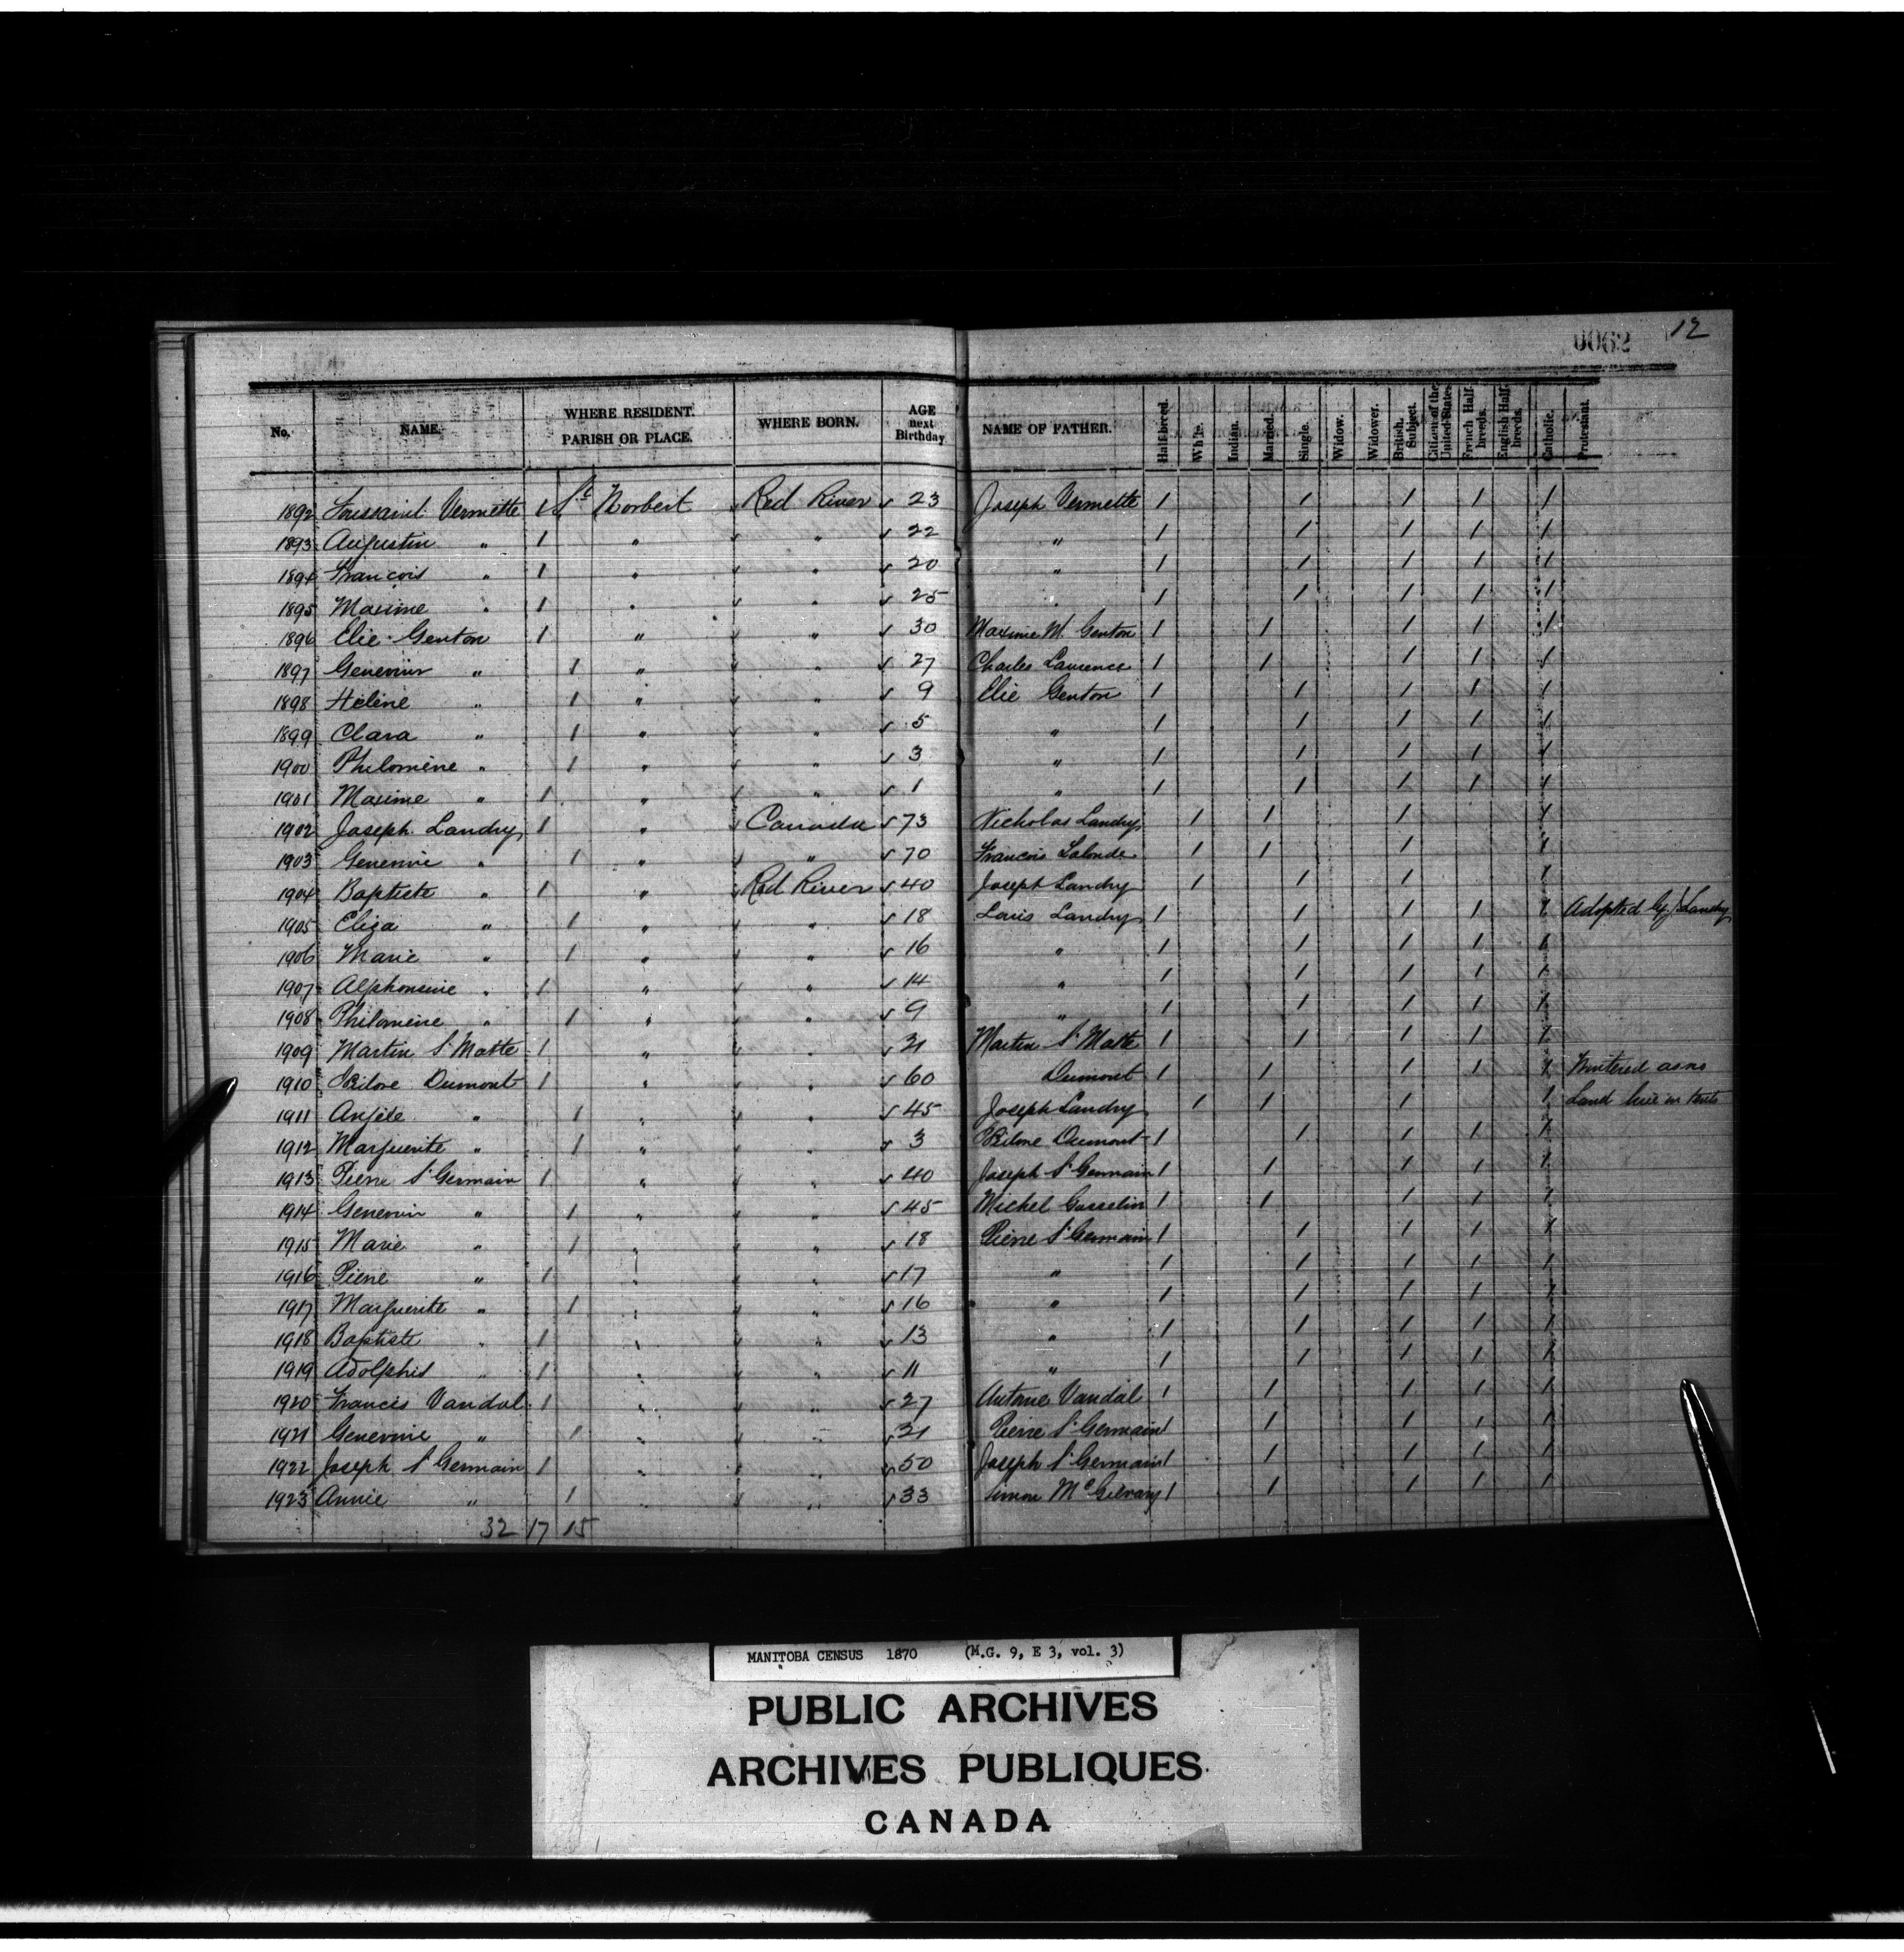 0062 12
No. NAME. WHERE RESIDENT. PARISH OR PLACE. WHERE BORN. AGE next Birthday NAME OF FATHER. Half-breed. White. Indian. Married. Single. Widow. Widower. British Subject. Citizen of the United States. French Half-breeds. English Half-breeds. Catholic. Protestant.
1892 Toussaint Vermette 1 St Norbert Red River 23 Joseph Vermette 1 1 1 1 1
1893 Augustin " 1 " " 22 " 1 1 1 1 1
1894 Francois " 1 " " 20 " 1 1 1 1 1
1895 Maxime " 1 " " 25 " 1 1 1 1 1
1896 Elie Genton 1 " " 30 Maxime M. Genton 1 1 1 1 1
1897 Genevive " 1 " " 27 Charles Laurence 1 1 1 1 1
1898 Helène " 1 " " 9 Elie Genton 1 1 1 1 1
1899 Clara " 1 " " 5 " 1 1 1 1 1
1900 Philomène " 1 " " 3 " 1 1 1 1 1
1901 Maxime " 1 " " 1 " 1 1 1 1 1
1902 Joseph Landry 1 " Canada 73 Nicholas Landry 1 1 1 1
1903 Genevive " 1 " " 70 Francois Lalonde 1 1 1 1
1904 Baptiste " 1 " Red River 40 Joseph Landry 1 1 1 1
1905 Eliza " 1 " " 18 Louis Landry 1 1 1 1 1 Adopted by J Landry
1906 Marie " 1 " " 16 " 1 1 1 1 1
1907 Alphonsine " 1 " " 14 " 1 1 1 1 1
1908 Philomène " 1 " " 9 " 1 1 1 1 1
1909 Martin St Matte 1 " " 21 Martin St Matte 1 1 1 1 1
1910 Dumont 1 " " 60 Dumont 1 1 1 1 1 Wintered as no
1911 Anjele " 1 " " 45 Joseph Landry 1 1 1 1 Land live in tents
1912 Marguerite " 1 " " 3 Dumont 1 1 1 1 1
1913 Pierre St Germain 1 " " 40 Joseph St Germain 1 1 1 1 1
1914 Genevive " 1 " " 45 Michel Gosselin 1 1 1 1 1
1915 Marie " 1 " " 18 Pierre St Germain 1 1 1 1 1
1916 Pierre " 1 " " 17 " 1 1 1 1 1
1917 Marguerite " 1 " " 16 " 1 1 1 1 1
1918 Baptiste " 1 " " 13 " 1 1 1 1 1
1919 Adolphis " 1 " " 11 " 1 1 1 1 1
1920 Francis Vandal 1 " " 27 Antoine Vandal 1 1 1 1 1
1921 Genevive " 1 " " 21 Pierre St Germain 1 1 1 1 1
1922 Joseph St Germain 1 " " 50 Joseph St Germain 1 1 1 1 1
1923 Annie " 1 " " 33 Simon McGilvary 1 1 1 1 1
32 17 15
MANITOBA CENSUS 1870 (M.G. 9, E 3, vol. 3)
PUBLIC ARCHIVES
ARCHIVES PUBLIQUES
CANADA